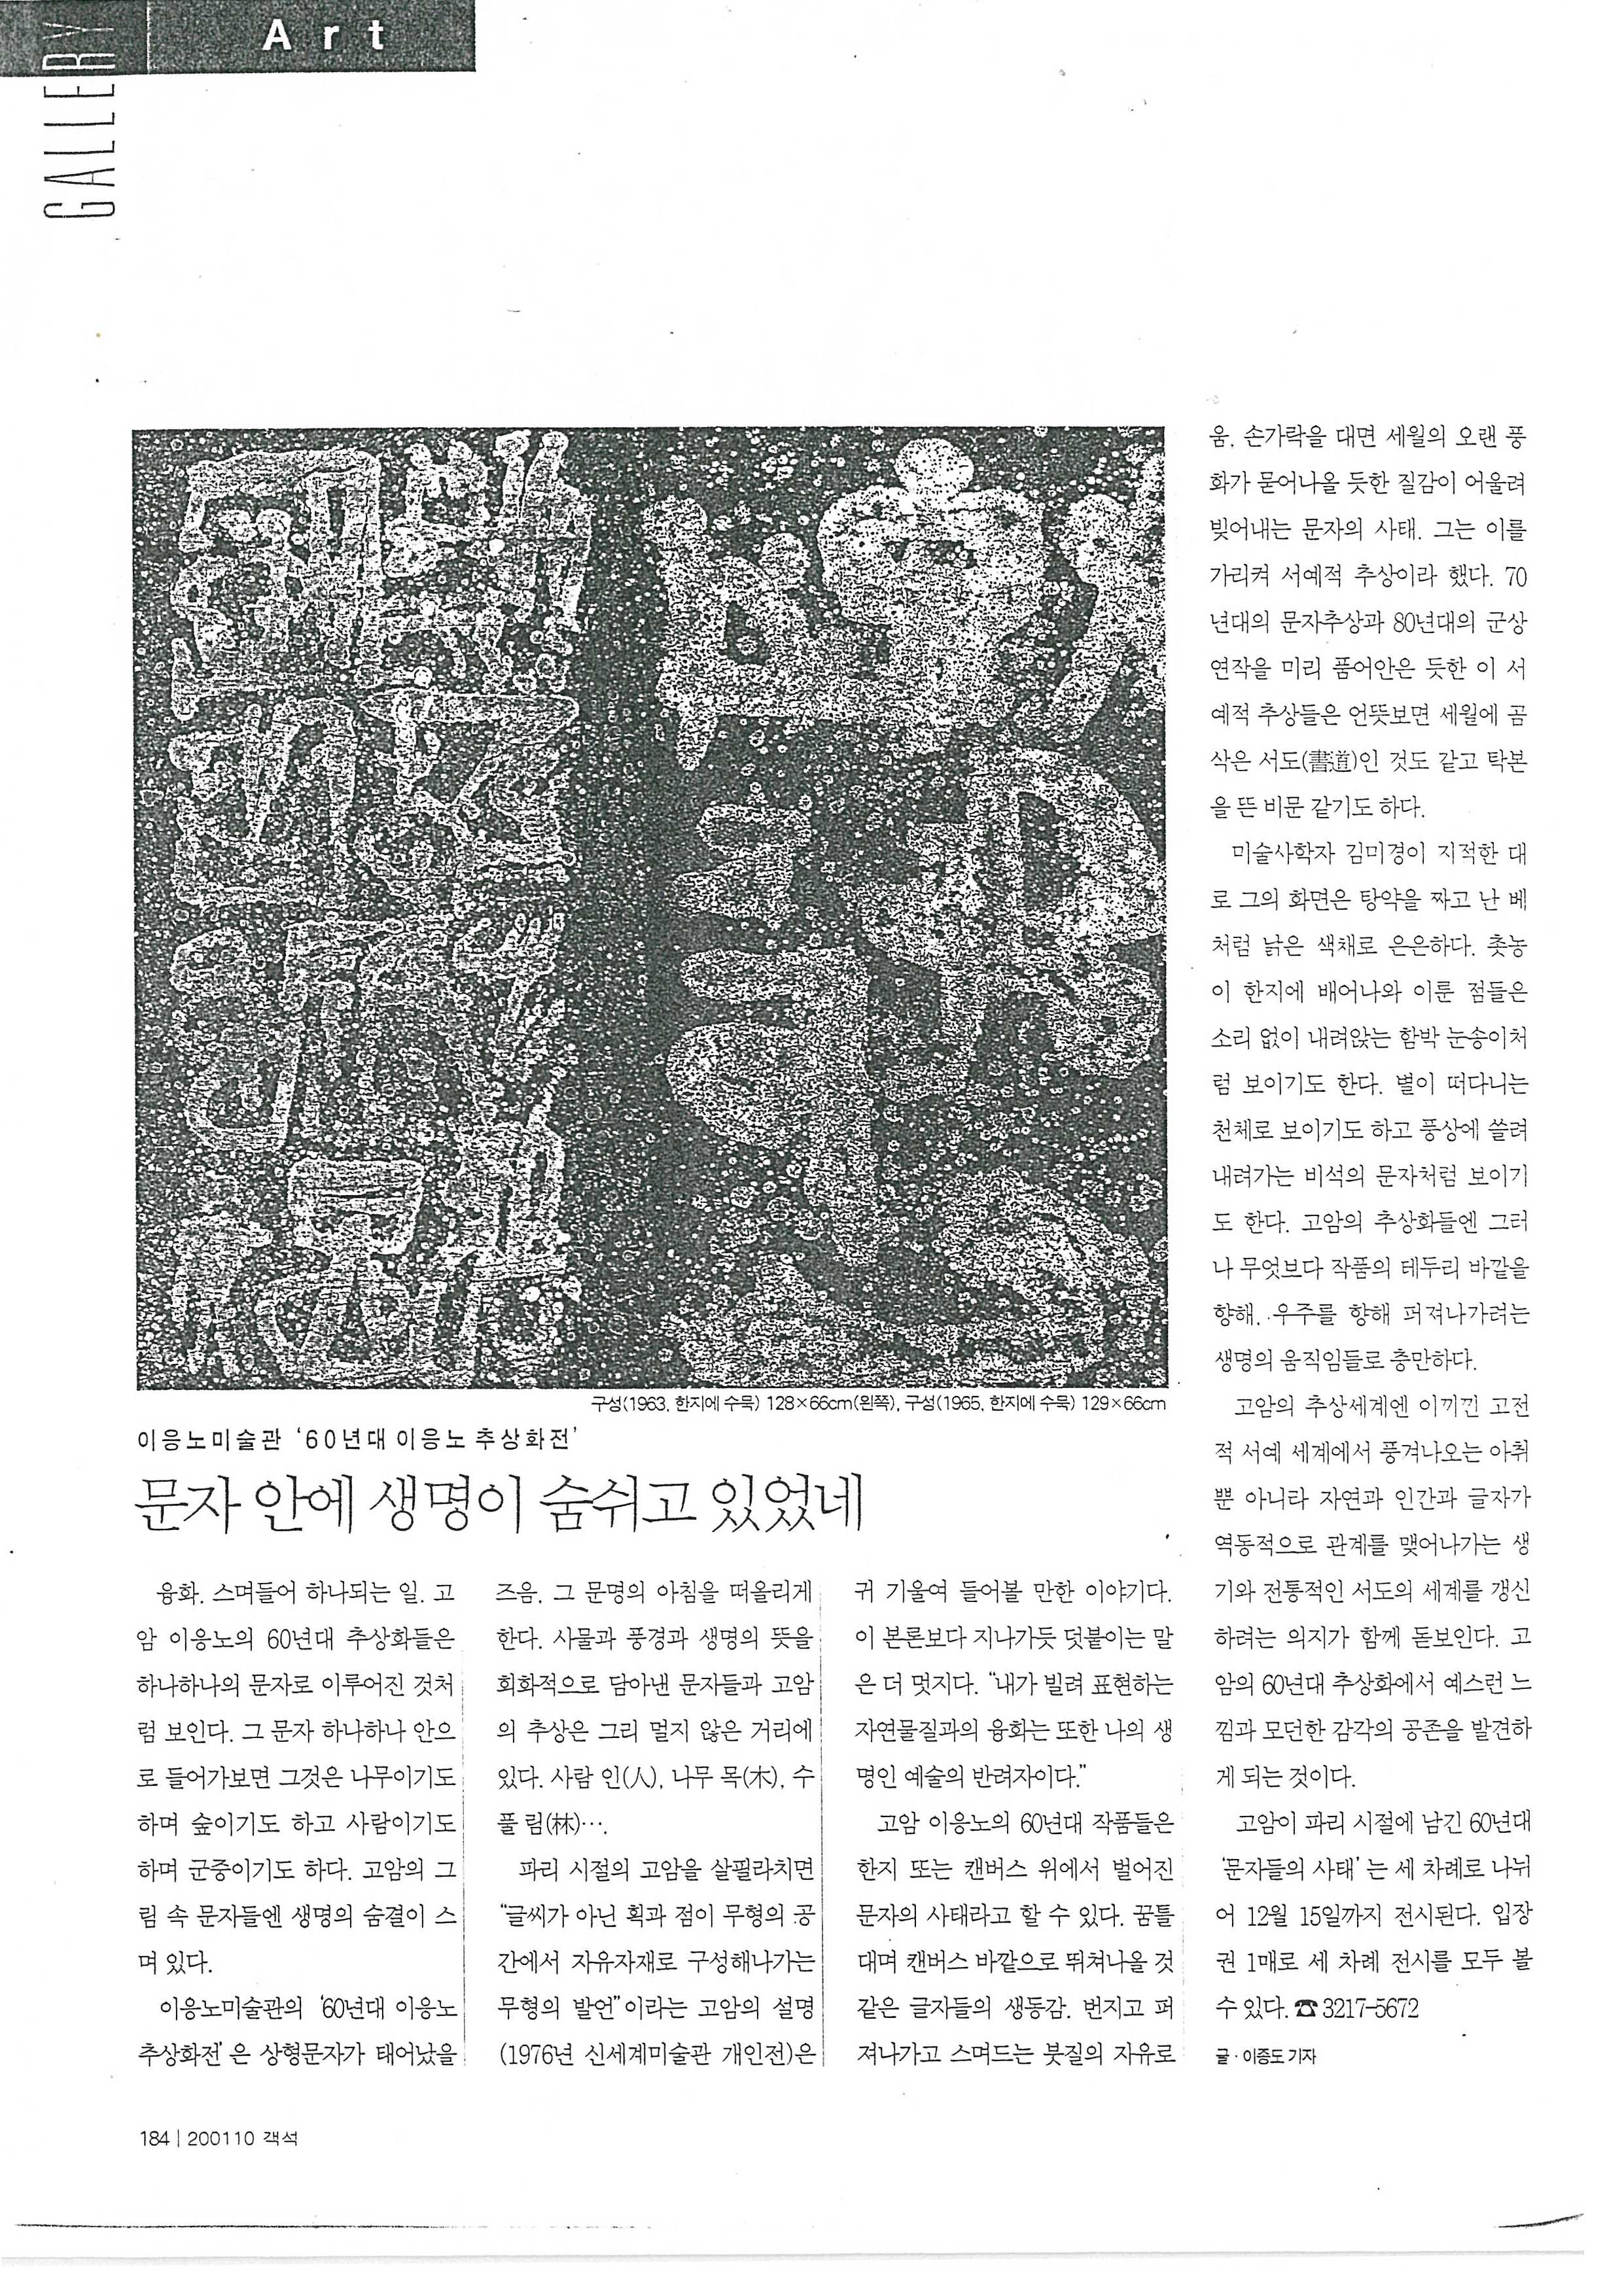 GALLERY
Art
구성(1963, 한지에 수묵) 128×66cm(왼쪽), 구성(1965, 한지에 수묵) 129×66cm
이응노미술관 ‘60년대 이응노 추상화전’
문자 안에 생명이 숨쉬고 있었네
융화. 스며들어 하나되는 일. 고
암 이응노의 60년대 추상화들은
하나하나의 문자로 이루어진 것처
럼 보인다. 그 문자 하나하나 안으
로 들어가보면 그것은 나무이기도
하며 숲이기도 하고 사람이기도
하며 군중이기도 하다. 고암의 그
림 속 문자들엔 생명의 숨결이 스
며 있다.
이응노미술관의 ‘60년대 이응노
추상화전’은 상형문자가 태어났을
즈음, 그 문명의 아침을 떠올리게
한다. 사물과 풍경과 생명의 뜻을
회화적으로 담아낸 문자들과 고암
의 추상은 그리 멀지 않은 거리에
있다. 사람 인(人), 나무 목(木), 수
풀 림(林)….
파리 시절의 고암을 살필라치면
“글씨가 아닌 획과 점이 무형의 공
간에서 자유자재로 구성해나가는
무형의 발언”이라는 고암의 설명
(1976년 신세계미술관 개인전)은
귀 기울여 들어볼 만한 이야기다.
이 본론보다 지나가듯 덧붙이는 말
은 더 멋지다. “내가 빌려 표현하는
자연물질과의 융화는 또한 나의 생
명인 예술의 반려자이다.”
고암 이응노의 60년대 작품들은
한지 또는 캔버스 위에서 벌어진
문자의 사태라고 할 수 있다. 꿈틀
대며 캔버스 바깥으로 뛰쳐나올 것
같은 글자들의 생동감. 번지고 퍼
져나가고 스며드는 붓질의 자유로
움. 손가락을 대면 세월의 오랜 풍
화가 묻어나올 듯한 질감이 어울려
빚어내는 문자의 사태. 그는 이를
가리켜 서예적 추상이라 했다. 70
년대의 문자추상과 80년대의 군상
연작을 미리 품어안은 듯한 이 서
예적 추상들은 언뜻보면 세월에 곰
삭은 서도(書道)인 것도 같고 탁본
을 뜬 비문 같기도 하다.
미술사학자 김미경이 지적한 대
로 그의 화면은 탕약을 짜고 난 베
처럼 낡은 색채로 은은하다. 촛농
이 한지에 배어나와 이룬 점들은
소리 없이 내려앉는 함박 눈송이처
럼 보이기도 한다. 별이 떠다니는
천체로 보이기도 하고 풍상에 쓸려
내려가는 비석의 문자처럼 보이기
도 한다. 고암의 추상화들엔 그러
나 무엇보다 작품의 테두리 바깥을
향해, 우주를 향해 퍼져나가려는
생명의 움직임들로 충만하다.
고암의 추상세계엔 이끼낀 고전
적 서예 세계에서 풍겨나오는 아취
뿐 아니라 자연과 인간과 글자가
역동적으로 관계를 맺어나가는 생
기와 전통적인 서도의 세계를 갱신
하려는 의지가 함께 돋보인다. 고
암의 60년대 추상화에서 예스런 느
낌과 모던한 감각의 공존을 발견하
게 되는 것이다.
고암이 파리 시절에 남긴 60년대
‘문자들의 사태’는 세 차례로 나뉘
어 12월 15일까지 전시된다. 입장
권 1매로 세 차례 전시를 모두 볼
수 있다. ☎3217-5672
글·이종도 기자
184 | 200110 객석